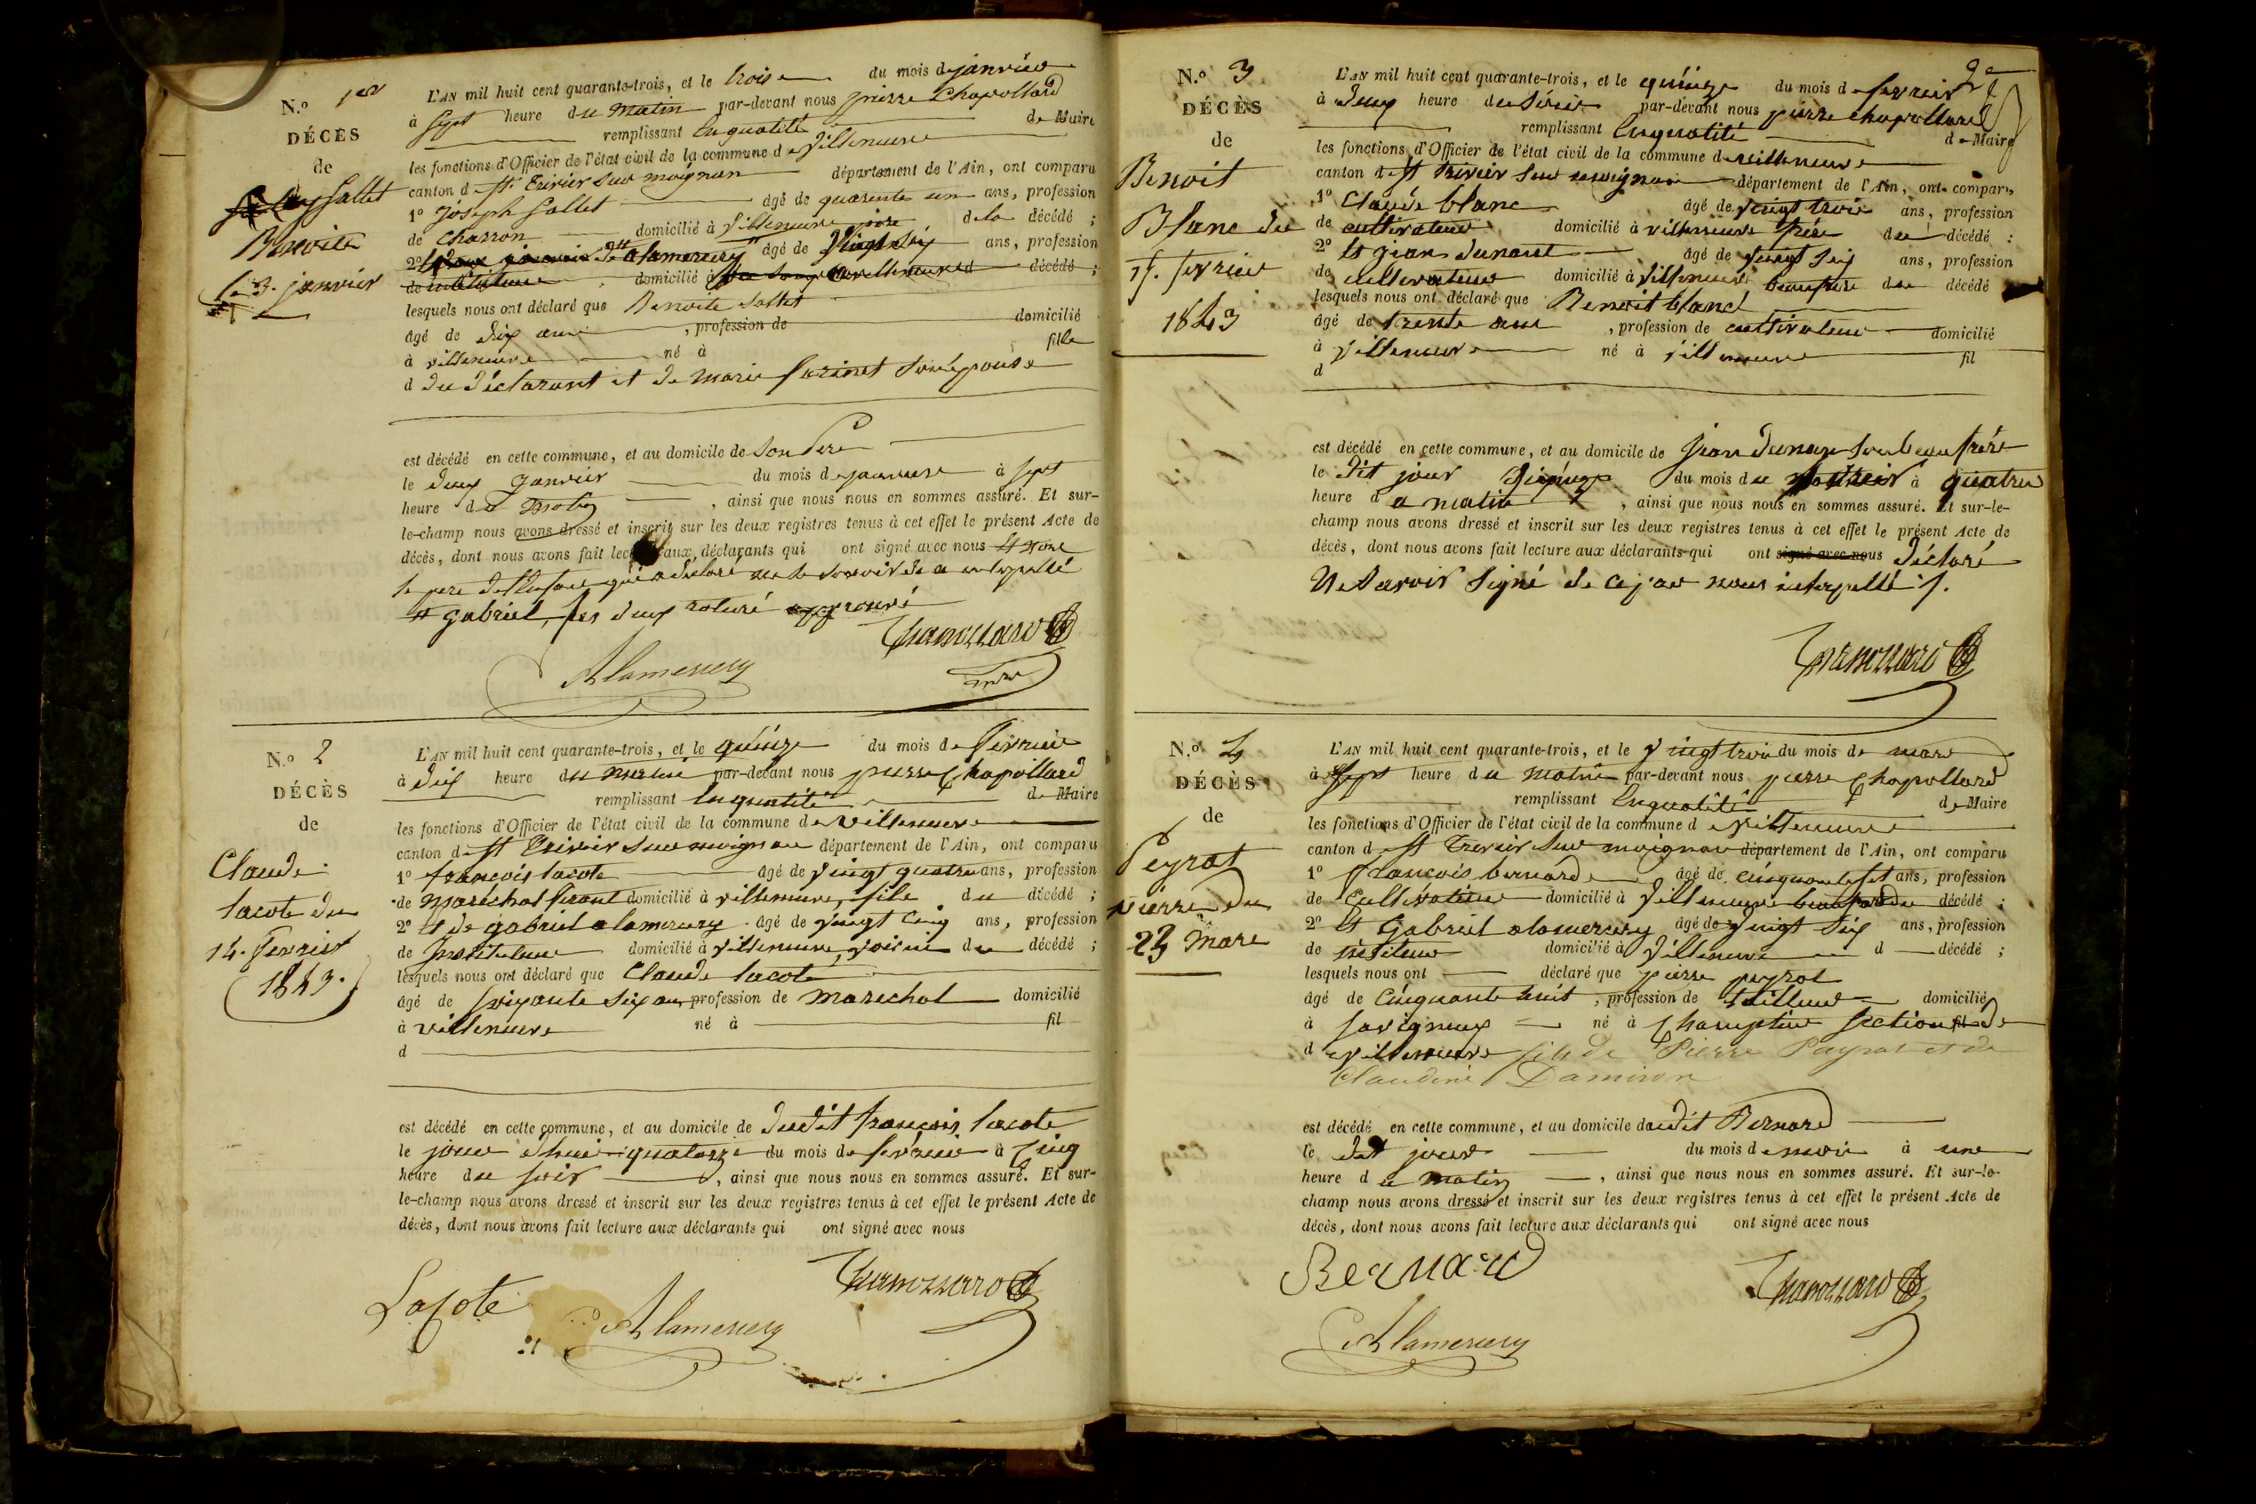 N.º 1er
DÉCÈS
de
Sallet
Benoite
le 3. janvier
L'AN mil huit cent quarante-trois, et le trois du mois de janvier
à sept heure du matin par-devant nous pierre Chapollard
remplissant En qualité de Maire
les fonctions d'Officier de l'état civil de la commune de Villeneuve
canton de St Trivier sur moignan département de l'Ain, ont comparu
1º joseph Sallet âgé de quarente un ans, profession
de charron domicilié à Villeneuve père de la décédé ;
2º alamercery âgé de vingt six ans, profession
de instituteur domicilié à villeneuve d décédé ;
lesquels nous ont déclaré que Benoite Sallet
âgé de dix ans , profession de domicilié
à villeneuve né à fille
d du déclarant et de marie farinet son épouse
est décédé en cette commune, et au domicile de son père
le deux janvier du mois de janvier à sept
heure du matin , ainsi que nous nous en sommes assuré. Et sur-
le-champ nous avons dressé et inscrit sur les deux registres tenus à cet effet le présent Acte de
décès, dont nous avons fait lecture aux déclarants qui ont signé avec nous
le père qui a déclaré ne le savoir de ce interpellé
# gabriel, les deux raturé approuvé
Chapollard
Alamercery
N.º 2
DÉCÈS
de
Claude
lacote du
14. fevrier
1843.
L'AN mil huit cent quarante-trois, et le quinze du mois de fevrier
à dix heure du matin par-devant nous pierre Chapollard
remplissant En qualité de Maire
les fonctions d'Officier de l'état civil de la commune de villeneuve
canton de St Trivier sur moignan département de l'Ain, ont comparu
1º francois lacote âgé de vingt quatre ans, profession
de maréchal ferant domicilié à villeneuve, fils du décédé ;
2º et de gabriel alamercery âgé de vingt cinq ans, profession
de instituteur domicilié à villeneuve, voisin du décédé ;
lesquels nous ont déclaré que Claude lacote
âgé de soixante six ans, profession de marechal domicilié
à villeneuve né à fil
d
est décédé en cette commune, et au domicile de dudit francois lacote
le jour d'hui quatorze du mois de fevrier à cinq
heure du soir , ainsi que nous nous en sommes assuré. Et sur-
le-champ nous avons dressé et inscrit sur les deux registres tenus à cet effet le présent Acte de
décès, dont nous avons fait lecture aux déclarants qui ont signé avec nous
Chapollard
Lacote
Alamercery
2e
N.º 3
DÉCÈS
de
Benoit
Blanc du
15. fevrier
1843
L'AN mil huit cent quarante-trois, et le quinze du mois de fevrier
à deux heure du soir par-devant nous pierre chapollard
remplissant En qualité de Maire
les fonctions d'Officier de l'état civil de la commune de villeneuve
canton de St trivier sur moignan département de l'Ain, ont comparu
1º Claude blanc âgé de vingt trois ans, profession
de cultivateur domicilié à villeneuve frère du décédé :
2º et jean dunant âgé de vingt six ans, profession
de cultivateur domicilié à villeneuve beaufrère du décédé
lesquels nous ont déclaré que Benoit blanc
âgé de trente ans , profession de cultivateur domicilié
à villeneuve né à villeneuve fil
d
est décédé en cette commune, et au domicile de jean dunan son beau frère
le dit jour quinze du mois de à quatre
heure du matin , ainsi que nous nous en sommes assuré. Et sur-le-
champ nous avons dressé et inscrit sur les deux registres tenus à cet effet le présent Acte de
décès, dont nous avons fait lecture aux déclarants qui ont signé avec nous déclaré
Ne savoir signé de ce par nous interpellé /.
Chapollard
N.º 4
DÉCÈS
de
Peyrat
pierre du
23 Mars
L'AN mil huit cent quarante-trois, et le vingt trois du mois de mars
à sept heure du matin par-devant nous pierre Chapollard
remplissant En qualité de Maire
les fonctions d'Officier de l'état civil de la commune de villeneuve
canton de St Trivier sur moignan département de l'Ain, ont comparu
1º francois bernard âgé de cinquante sept ans, profession
de cultivateur domicilié à villeneuve du décédé ;
2º et Gabriel alamercery âgé de vingt six ans, profession
de instituteur domicilié à villeneuve d décédé ;
lesquels nous ont déclaré que pierre peyrat
âgé de cinquante huit , profession de tailleur domicilié
à savigneux né à Champteins section de
d villeneuve fils de Pierre Payrat et de
Claudine Damiron
est décédé en cette commune, et au domicile dudit Bernard
le dit jour du mois de mars à une
heure du matin , ainsi que nous nous en sommes assuré. Et sur-le-
champ nous avons dressé et inscrit sur les deux registres tenus à cet effet le présent Acte de
décès, dont nous avons fait lecture aux déclarants qui ont signé avec nous
Bernard
Chapollard
Alamercery